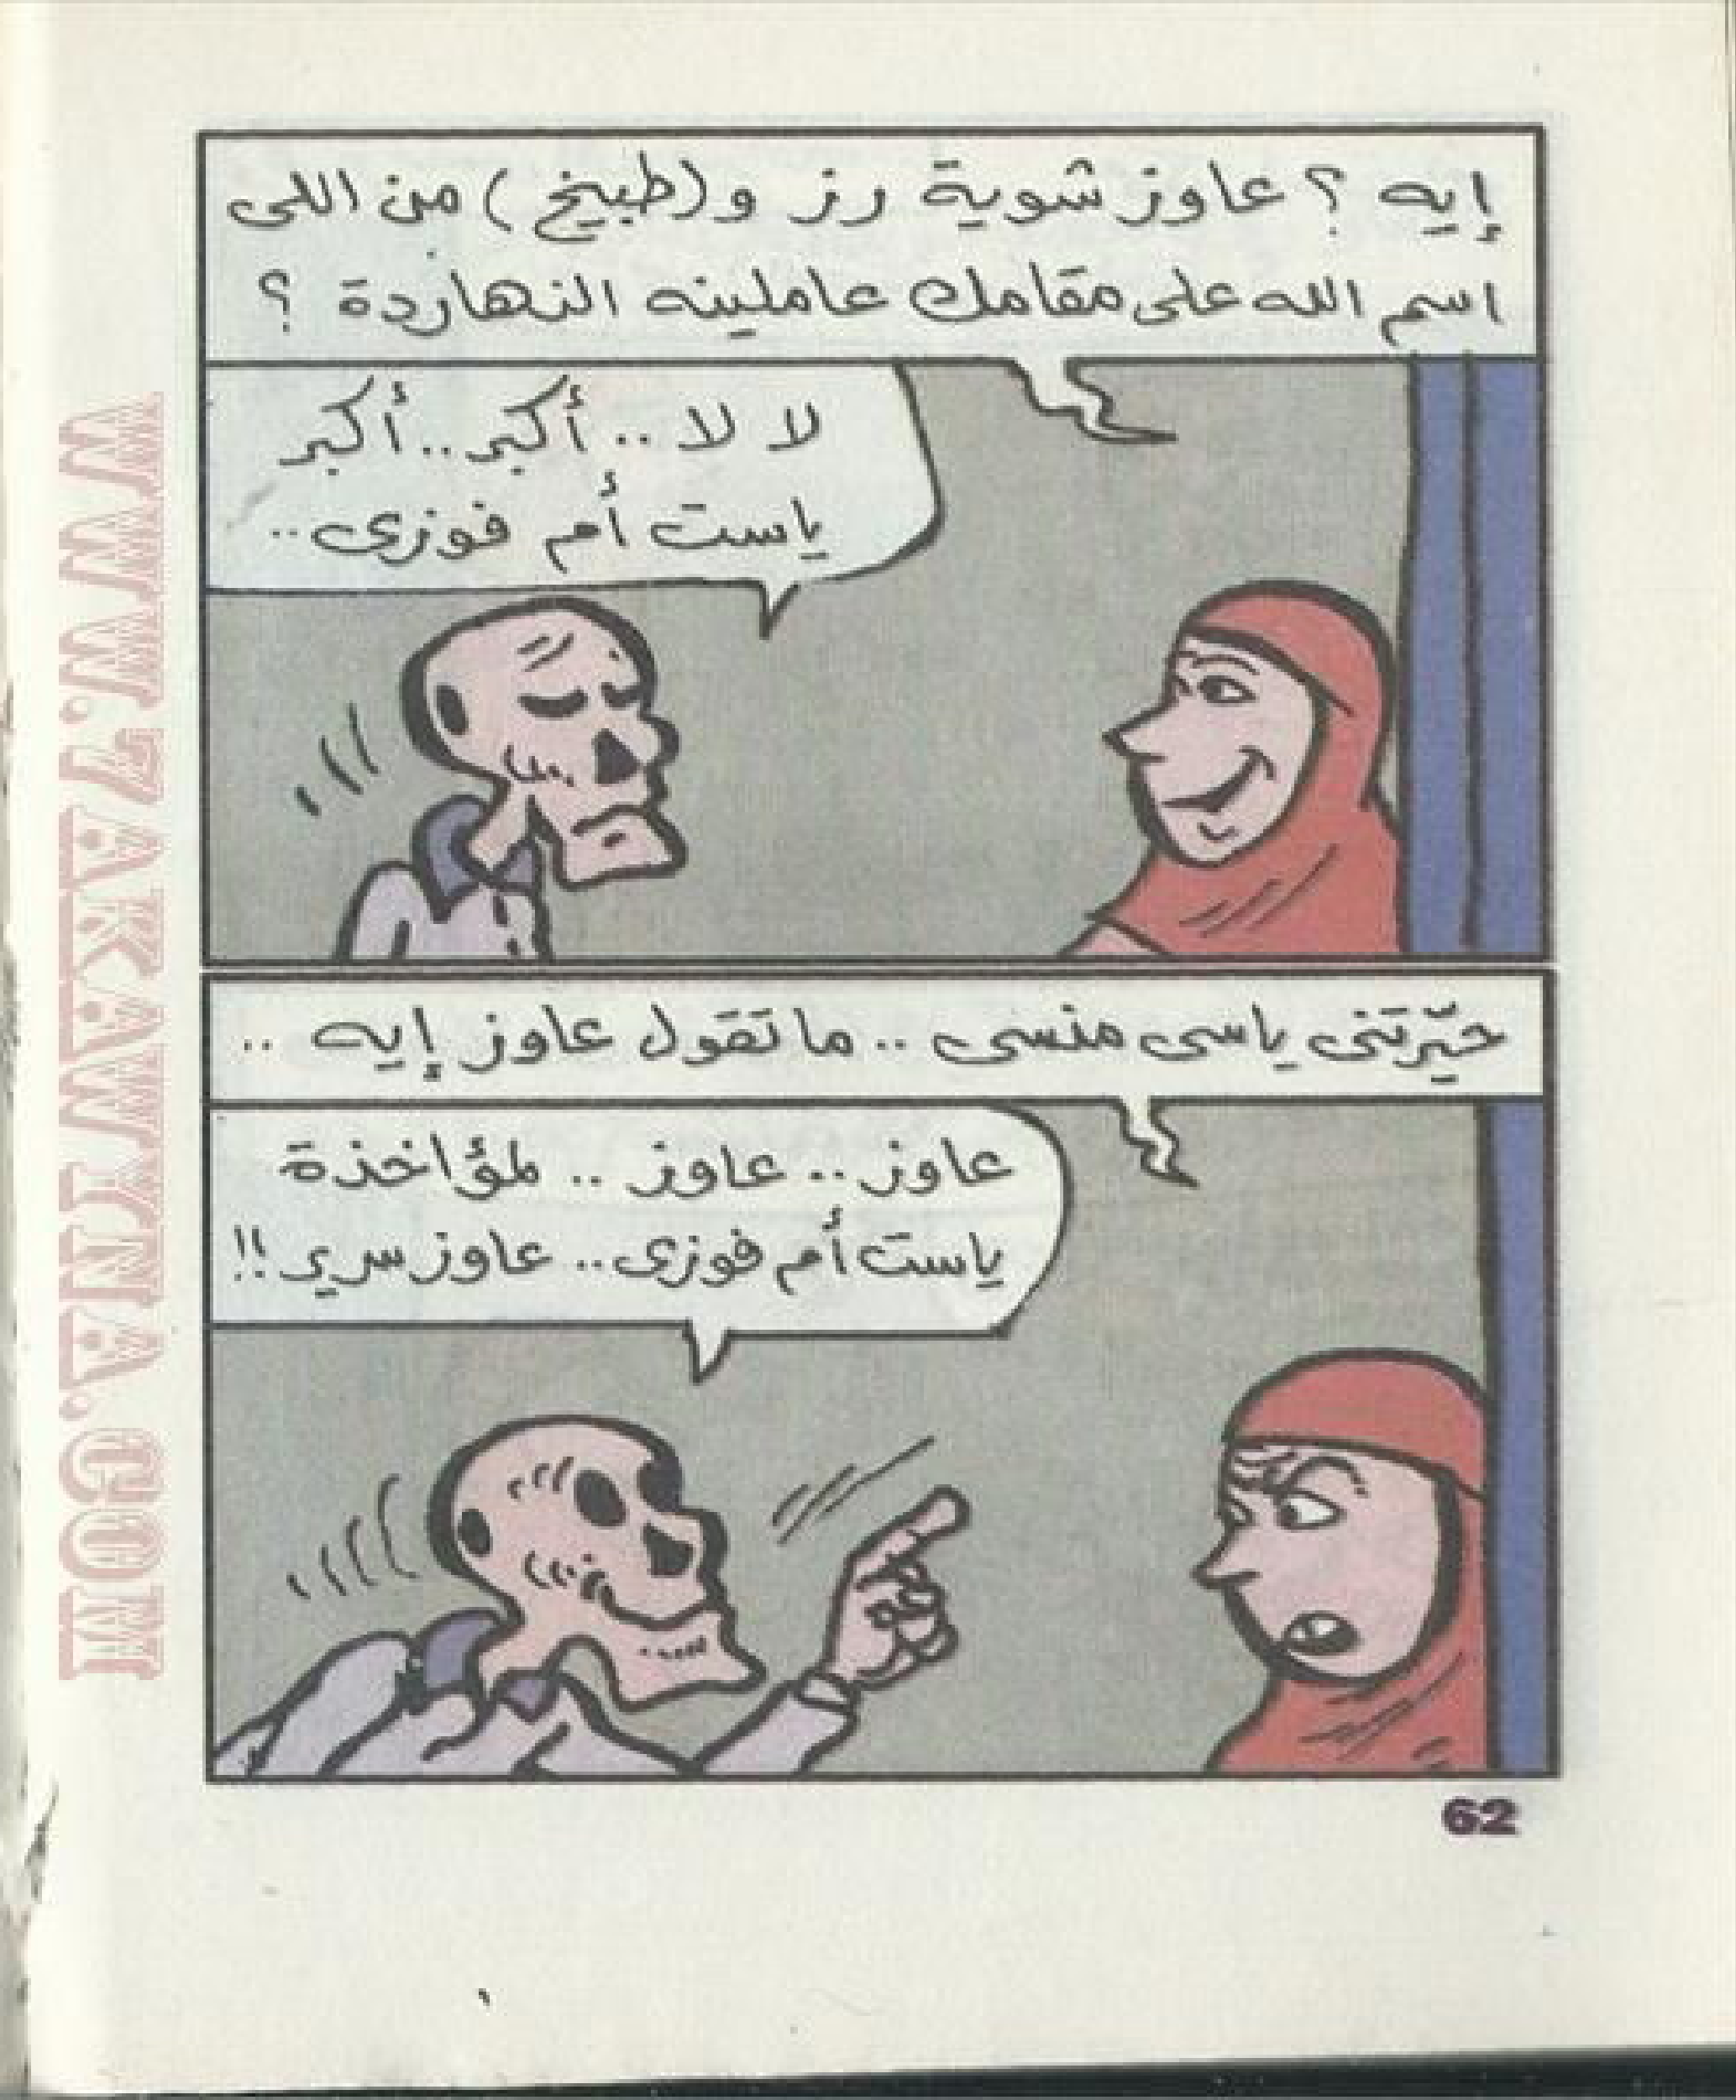 إيه ؟ عاوز شوية رز و(طبيخ) من اللى
اسم الله على مقامك عاملينه النهاردة ؟
لا لا .. أكبر .. أكبر
ياست أم فوزى ..
حيّرتنى ياسى منسى .. ما تقول عاوز إيه ..
عاوز .. عاوز .. لمؤاخذة
ياست أم فوزى .. عاوز سرير !!
62
WWW.7AKAWTNA.COM